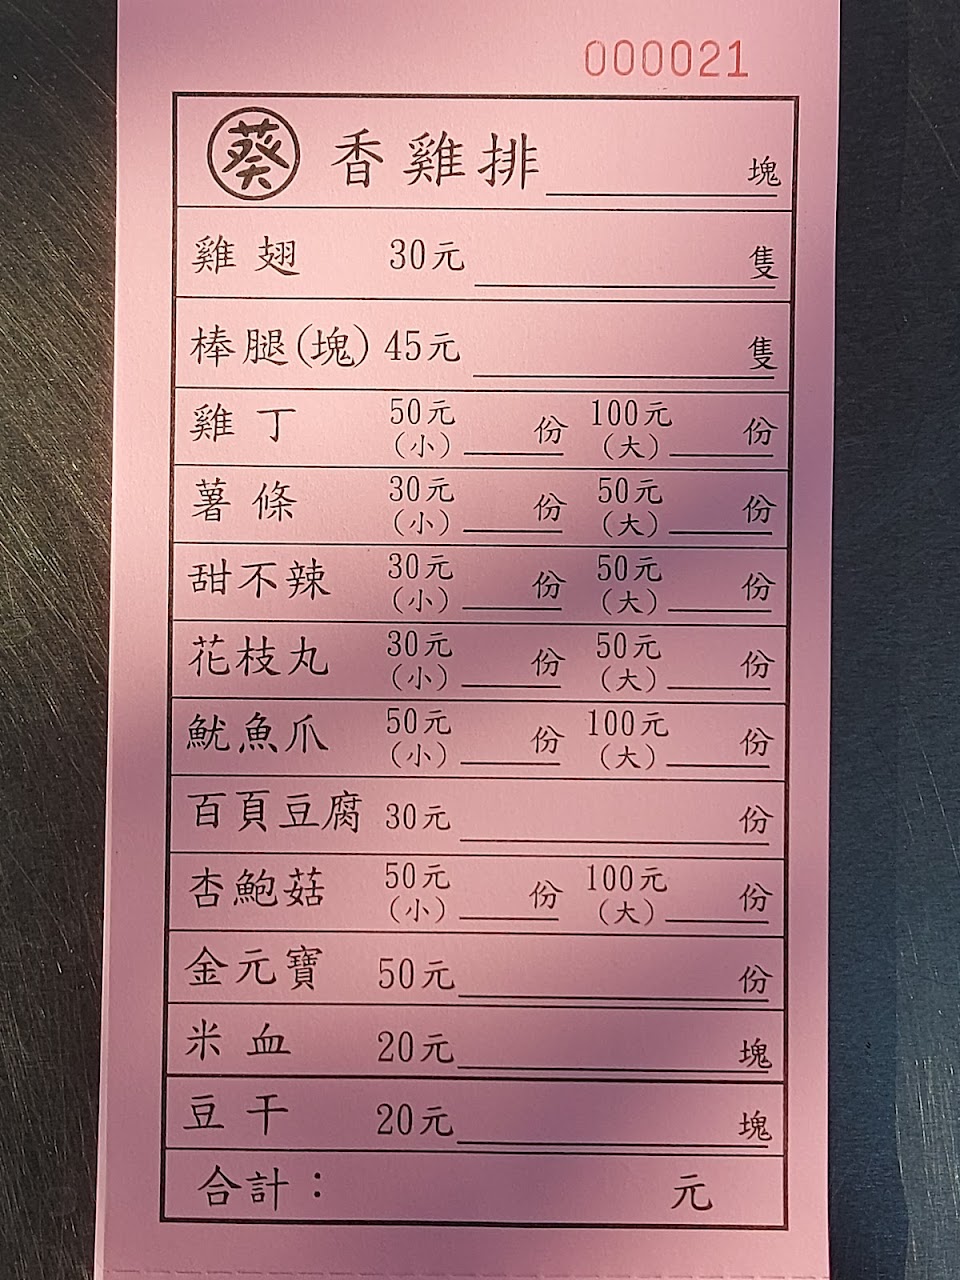 000021
葵 香雞排 塊
雞翅 30元 隻
棒腿(塊) 45元 隻
雞丁 50元(小) 份 100元(大) 份
薯條 30元(小) 份 50元(大) 份
甜不辣 30元(小) 份 50元(大) 份
花枝丸 30元(小) 份 50元(大) 份
魷魚爪 50元(小) 份 100元(大) 份
百頁豆腐 30元 份
杏鮑菇 50元(小) 份 100元(大) 份
金元寶 50元 份
米血 20元 塊
豆干 20元 塊
合計： 元